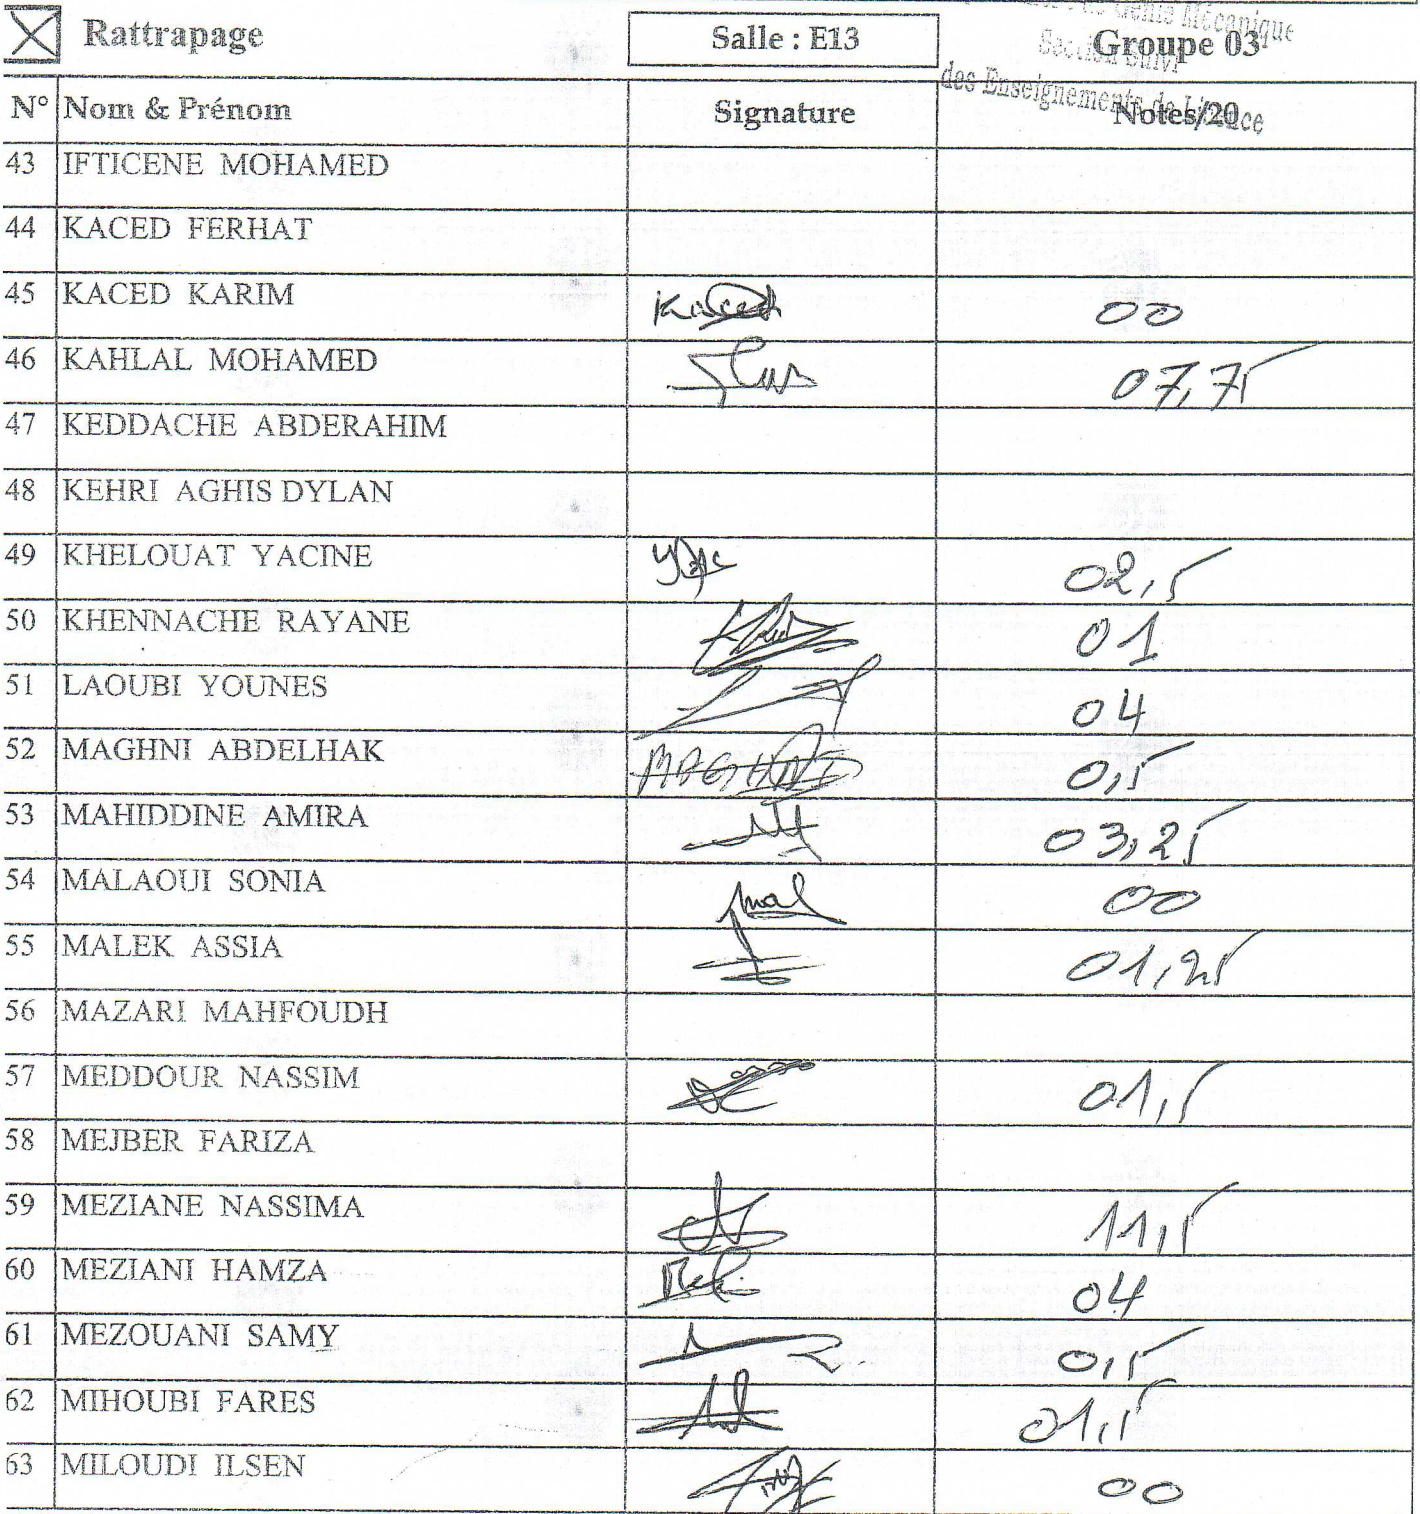 Rattrapage Salle : E13 Groupe 03
de Génie Mécanique
Section Suivi
des Enseignements de Licence
N° Nom & Prénom Signature Notes/20
43 IFTICENE MOHAMED
44 KACED FERHAT
45 KACED KARIM Kaced 00
46 KAHLAL MOHAMED 07,75
47 KEDDACHE ABDERAHIM
48 KEHRI AGHIS DYLAN
49 KHELOUAT YACINE 02,5
50 KHENNACHE RAYANE 01
51 LAOUBI YOUNES 04
52 MAGHNI ABDELHAK MAGHNI 0,5
53 MAHIDDINE AMIRA 03,25
54 MALAOUI SONIA 00
55 MALEK ASSIA 01,25
56 MAZARI MAHFOUDH
57 MEDDOUR NASSIM 01,5
58 MEJBER FARIZA
59 MEZIANE NASSIMA 11,5
60 MEZIANI HAMZA 04
61 MEZOUANI SAMY 0,5
62 MIHOUBI FARES 01,5
63 MILOUDI ILSEN 00